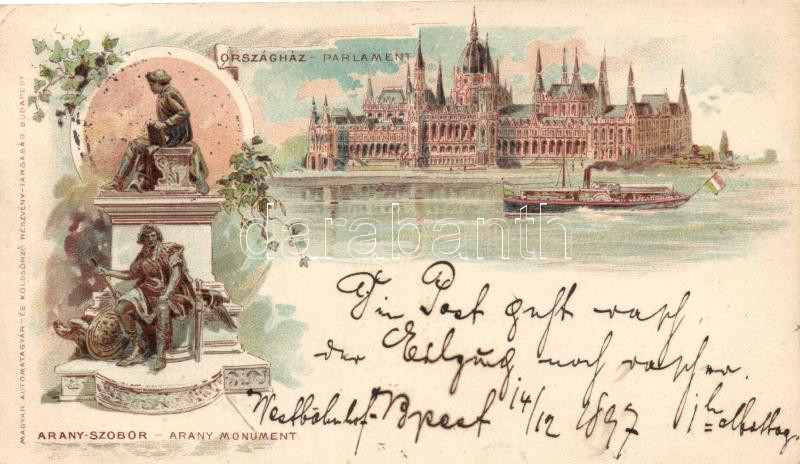 ORSZÁGHÁZ – PARLAMENT
MAGYAR AUTOMATAGYÁR- ÉS KÖLCSÖNZŐ RÉSZVÉNY-TÁRSASÁG BUDAPEST
darabanth
Die Post geht rasch,
der Eilzug noch rascher.
Westbahnhof-Bpest 14/12 1897 1h
ARANY-SZOBOR – ARANY MONUMENT